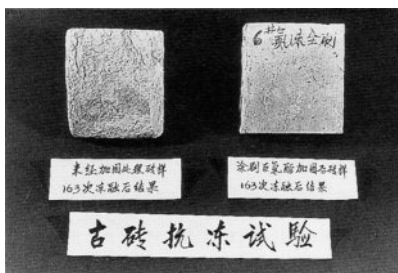 6# 氰凃全刷
未经加固处理砖样
163次冻融后结果
涂刷巨氰酯加固后砖样
163次冻融后结果
古砖抗冻试验